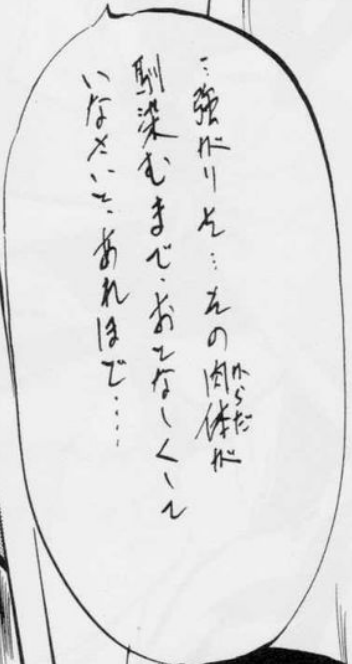 …強がりを…その肉体が
からだ
馴染むまで、おとなしくして
いなさいと、あれほど……